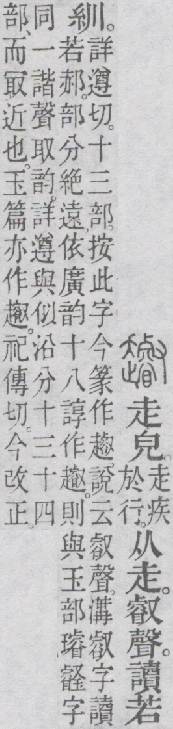 走皃。走疾於行。从走。叡聲。讀若
紃。詳遵切。十三部。按此字今篆作說云㕡聲。溝㕡字讀
若郝。部分絕遠依廣韵十八諄作則與玉部璿壡字
同一諧聲取韵。詳遵與似沿分十三十四
部、而㝡近也。玉篇亦作祀傳切。今改正